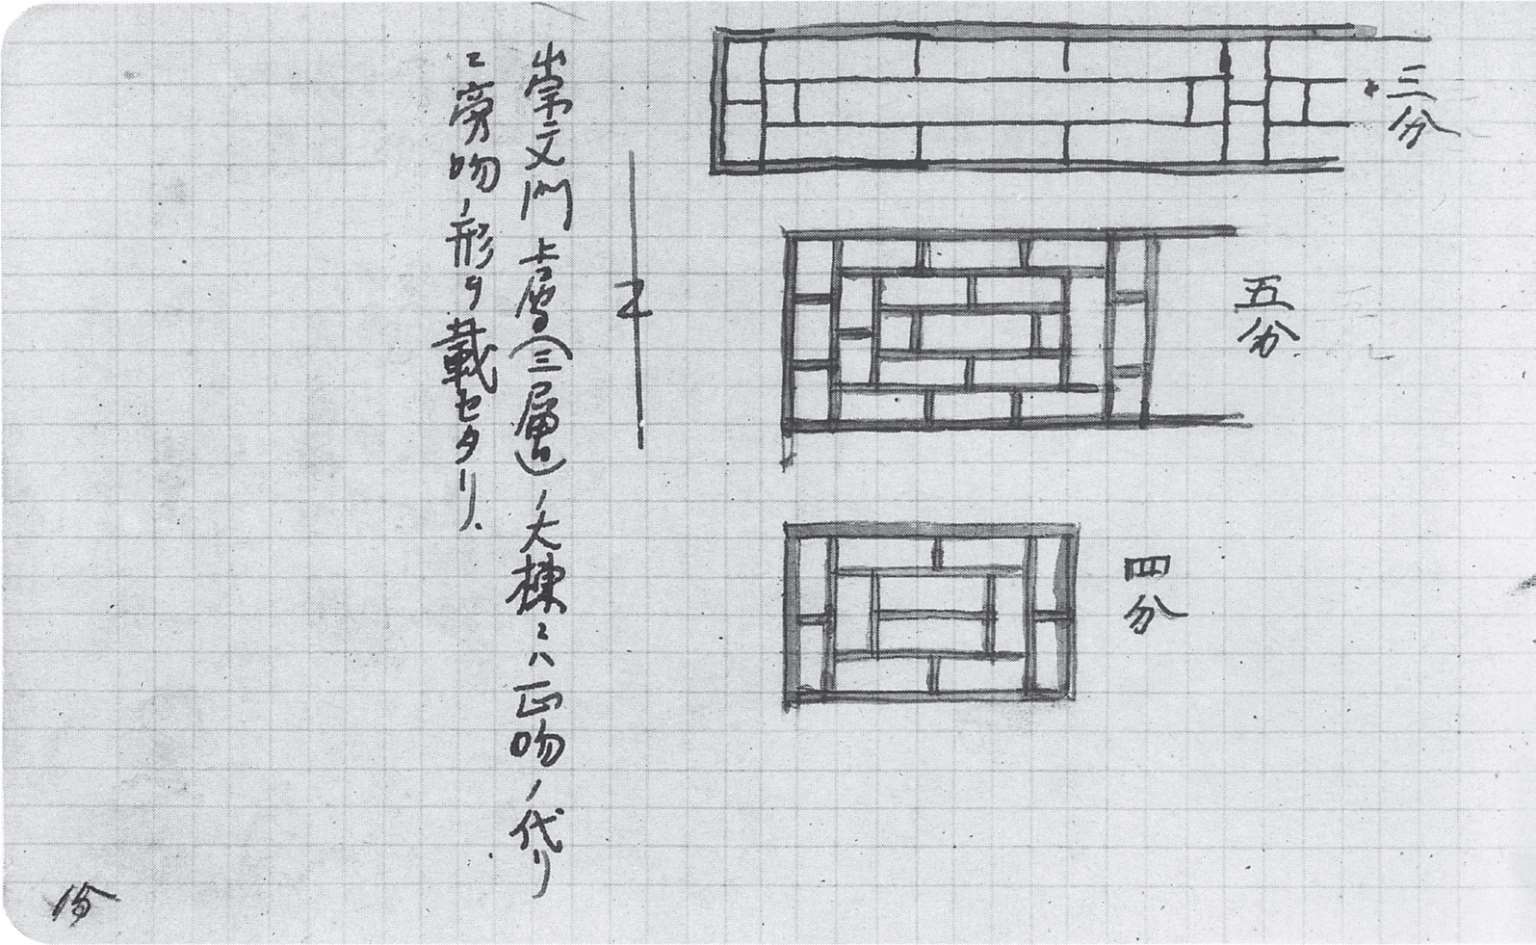 三分
五分
四分
崇文門上層(三層目)ノ大棟ニハ正吻ノ代リ
ニ旁吻ノ形ヲ載セタリ.